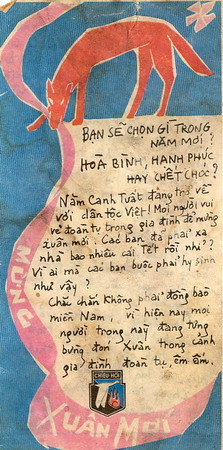 BẠN SẼ CHỌN GÌ TRONG
NĂM MỚI?
HOÀ BÌNH, HẠNH PHÚC
HAY CHẾT CHÓC?
Năm Canh Tuất đang trở về
với dân tộc Việt! Mọi người vui
vẻ đoàn tụ trong gia đình để mừng
xuân mới. Các bạn đã phải xa
nhà bao nhiêu cái Tết rồi như??
Vì ai mà các bạn buộc phải hy sinh
như vậy?
Chắc chắn không phải đồng bào
miền Nam, vì hiện nay mọi
người trong này đang tưng
bừng đón Xuân trong cảnh
gia đình đoàn tụ êm ấm.
CHIÊU HỒI
MỪNG
XUÂN MỚI